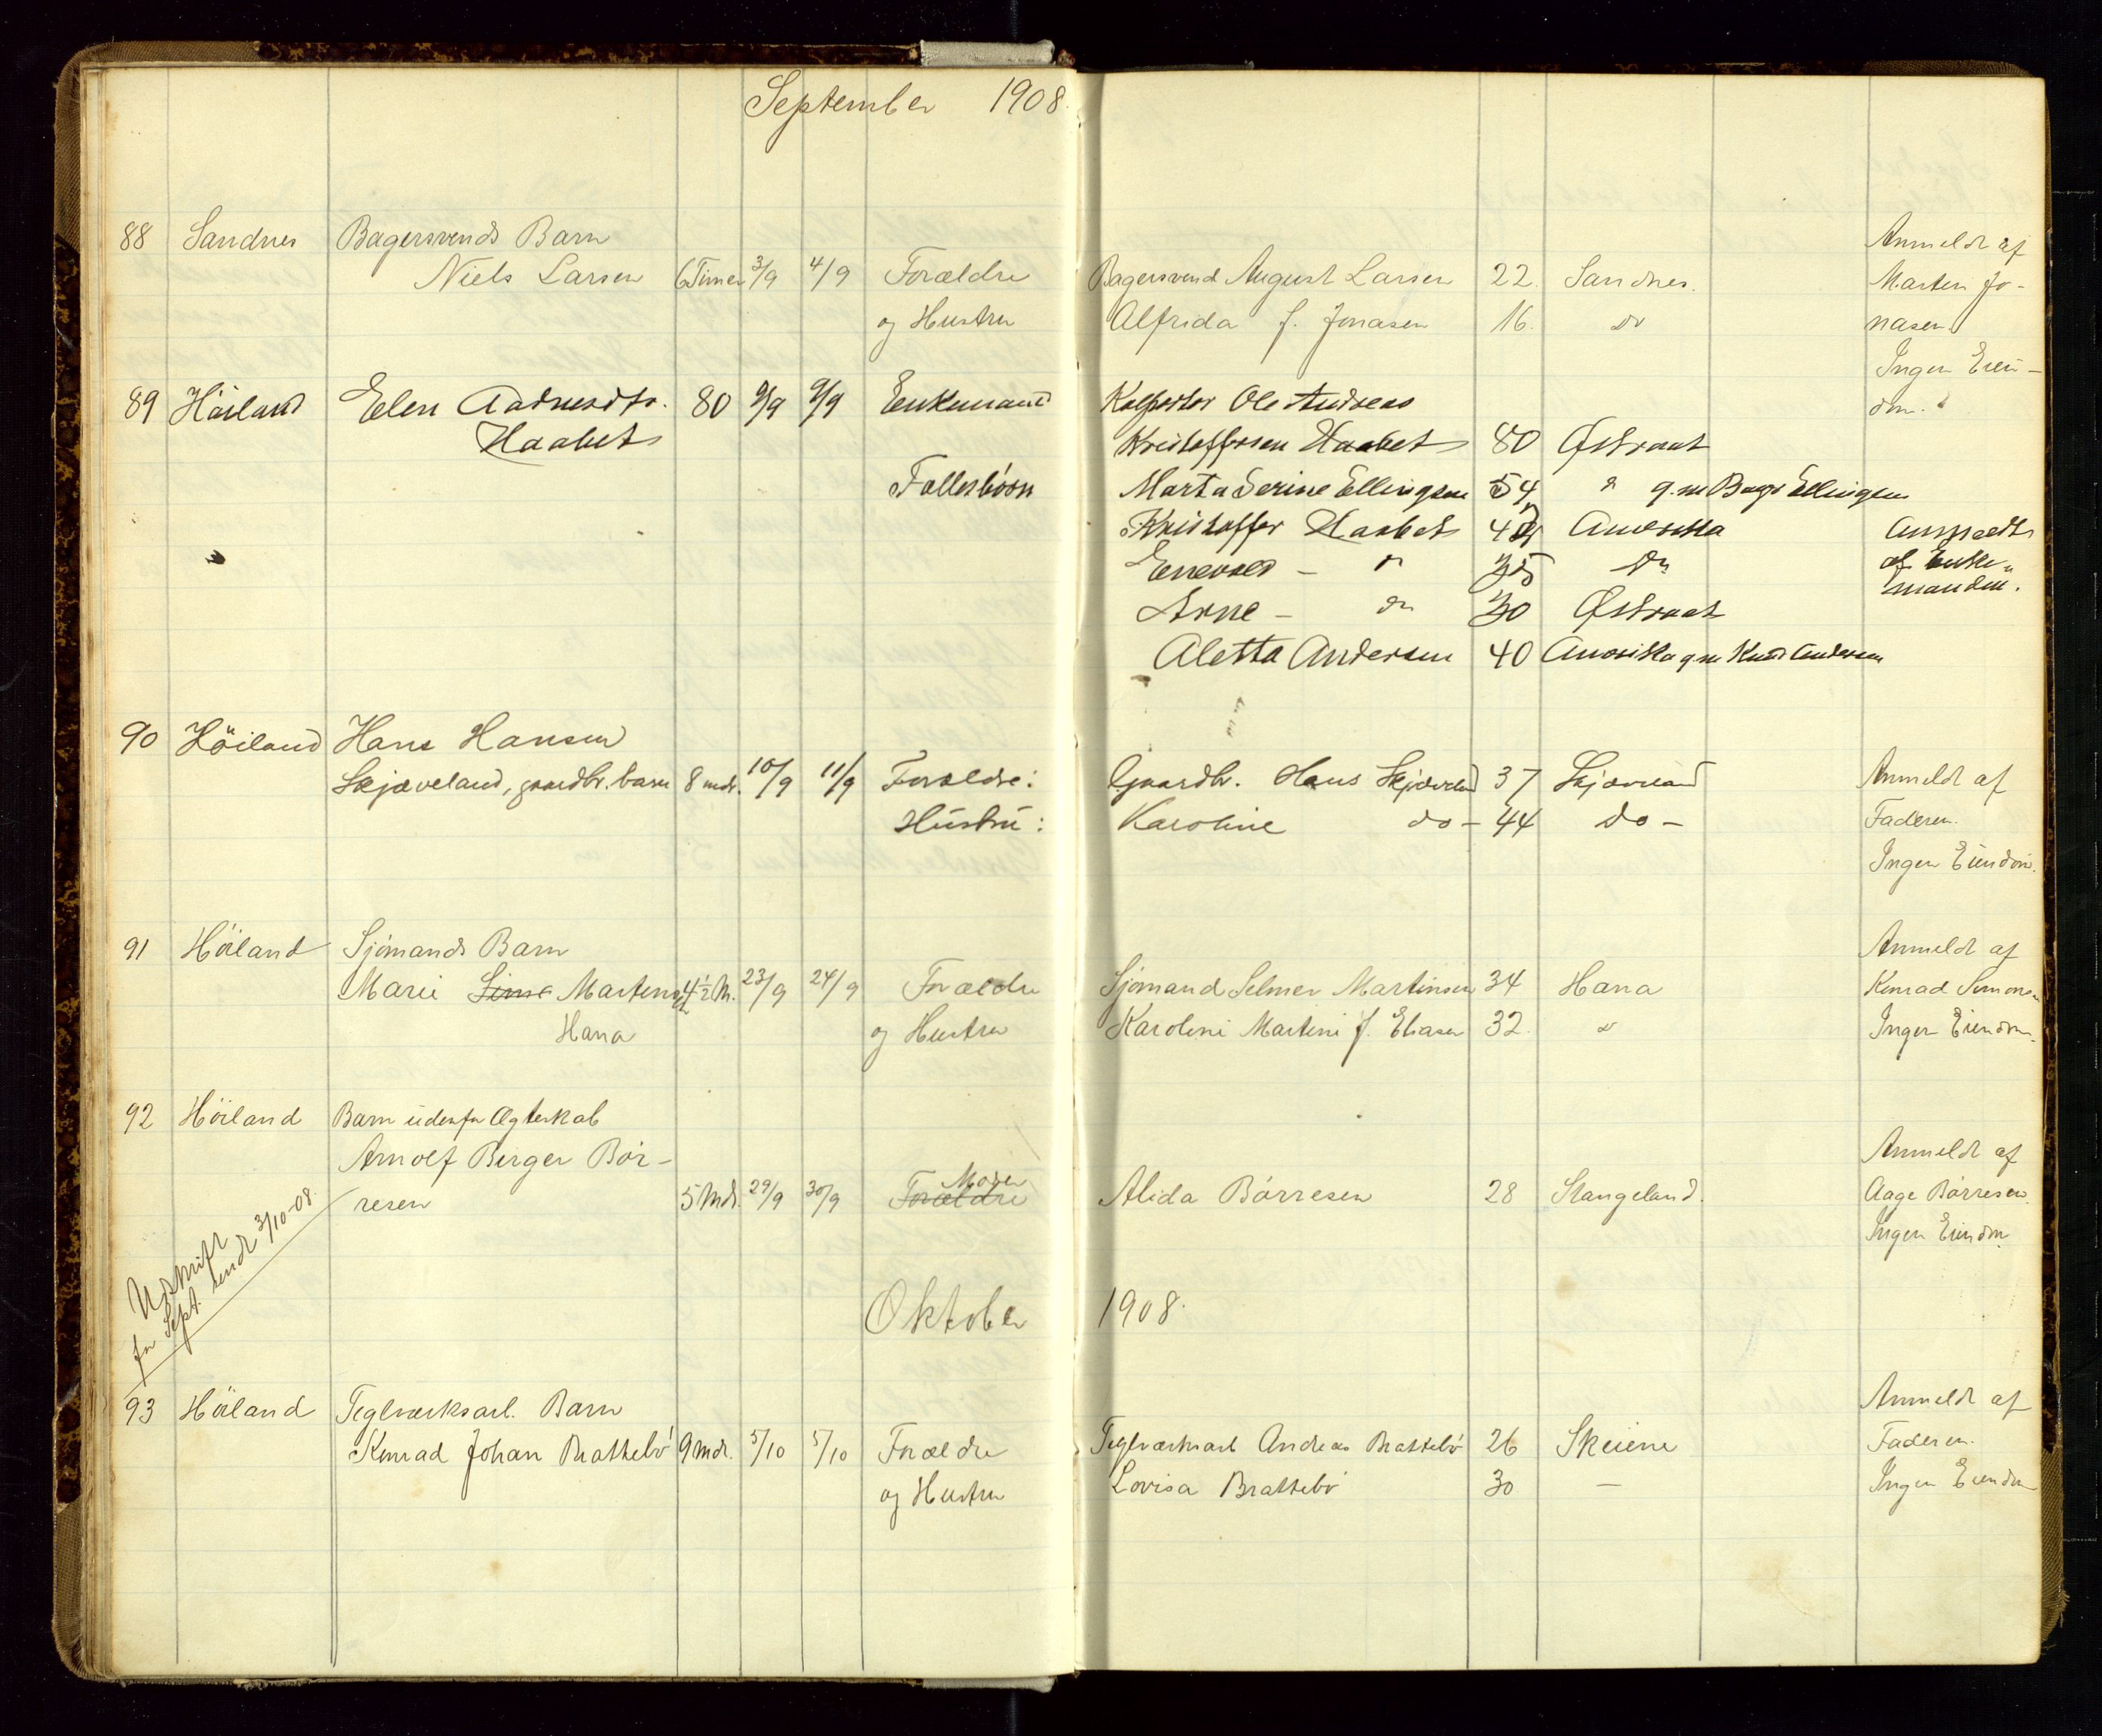 September 1908.
88 Sandnes Bagersvends Barn
Niels Larsen 6 Timer 3/9 4/9 Forældre Bagersvend August Larsen 22. Sandnes. Anmeldt af Marten Jo-
og Hustru Alfrida f. Jonasen 16. do nasen.
Ingen Eien-
dom.
89 Höiland Elen Aadnesdtr. 80 9/9 9/9 Enkemand Kolportør Ole Andreas
Haabets Kristoffersen Haabet 80 Østraat
Fællesbørn Marta Serine Ellingsen 54 " g. m. Ellingsen
Kristoffer Haabet Amerika Anmeldt
Enevald - " 35 do af Enke-
Arne - " 30 Østraat manden.
Aletta Andersen 40 Amerika g. m. Knud Andersen
90 Höiland Hans Hansen
Skjæveland, gaardbr. barn 8 mdr. 10/9 11/9 Forældre: Gaardbr. Hans Skjæveland 37 Skjæveland Anmeldt af
Hustru: Karoline do - 44 do - Faderen.
Ingen Eiendom.
91 Höiland Sjømands Barn Anmeldt af
Marie Martinsen 4½ M. 23/9 24/9 Forældre Sjømand Selmer Martinsen 34 Hana Konrad Simonsen
Hana og Hustru Karoline Martine f. Eliasen 32. " Ingen Eiendom.
92 Höiland Barn udenfor Ægteskab
Arnolf Berger Bör- Anmeldt af
Moder
resen 5 Mdr. 29/9 30/9 Forældre Alida Börresen 28 Stangeland. Aage Börresen.
Ingen Eiendom
Udskrift
for Sept. sendt 3/10-08.
Oktober 1908.
93 Höiland Teglværksarb. Barn Anmeldt af
Konrad Johan Brattebö 9 Mdr. 5/10 5/10 Forældre Teglværksarb Andreas Brattebö 26 Skeiene Faderen.
og Hustru Lovisa Brattebö 30 — Ingen Eiendom